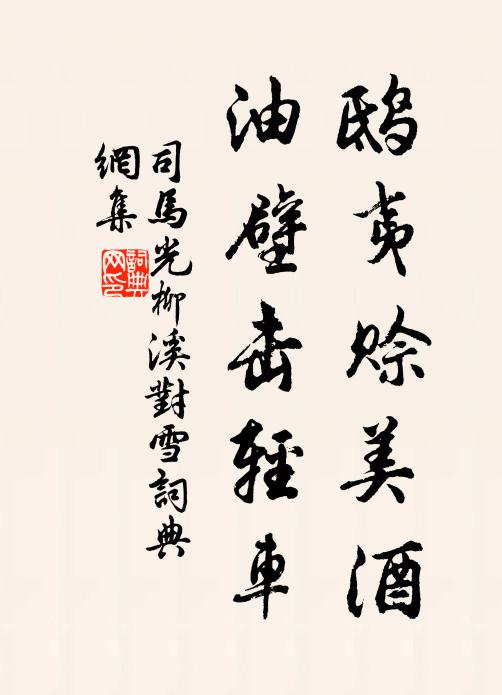 鸱夷赊美酒
油壁击輕車
司馬光柳溪對雪詞典
網集
詞典网印